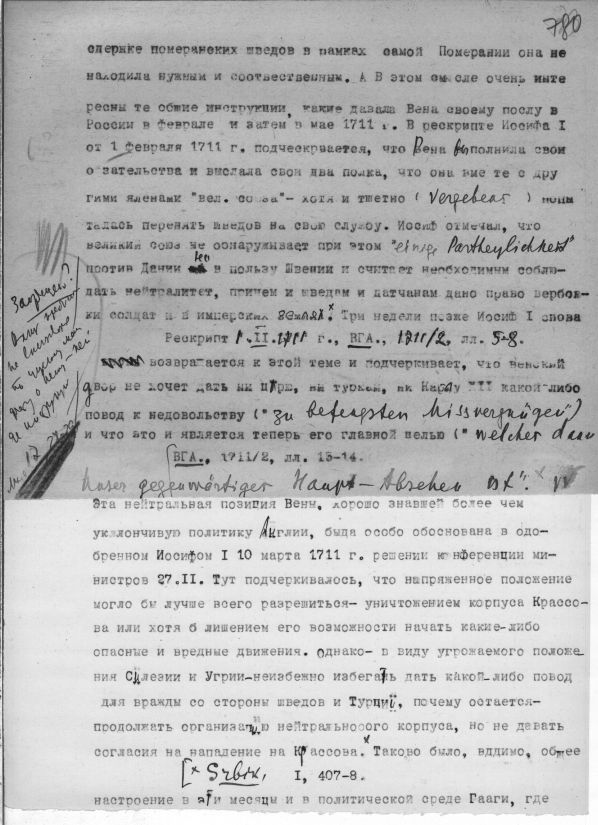 780
слерже померанских шведов в рамках самой Померании она не
находила нужным и соотвественным. А В этом смысле очень инте
ресны те общие инструкции, какие давала Вена своему послу в
России в феврале и затем в мае 1711 г. В рескрипте Иосифа I
от 1 февраля 1711 г. подчеркивается, что Вена выполнила свои
о зательства и выслала свои два полка, что она вме те с дру
гими членами "вел. союза"- хотя и тщетно (Vergebens) попы
талась перенять шведов на свою службу. Иосиф отмечал, что
великий союз не обнаруживает при этом "einige Partheylichkeit"
против Дании в пользу Швеции и считает необходимым соблю-
дать нейтралитет, причем и шведам и датчанам дано право вербов-
ки солдат и в имперских землях.× Три недели позже Иосиф I снова
Рескрипт 1.II.1711 г., ВГА., 1711/2, лл. 5-8.
возвращается к этой теме и подчеркивает, что венский
двор не хочет дать ни царю, ни туркам, ни Карлу XII какой-либо
повод к недовольству ("zu befengsten Missvergnügen")
и что это и является теперь его главной целью ("welcher dann
ВГА., 1711/2, лл. 13-14.
unser gegenwärtiger Haupt-Absehen ist".×
Эта нейтральная позиция Вены, хорошо знавшей более чем
уклончивую политику Англии, была особо обоснована в одо-
бренном Иосифом I 10 марта 1711 г. решении конференции ми-
нистров 27.II. Тут подчеркивалось, что напряженное положение
могло бы лучше всего разрешиться- уничтожением корпуса Крассо-
ва или хотя б лишением его возможности начать какие-либо
опасные и вредные движения. Однако- в виду угрожаемого положе-
ния Силезии и Угрии-неизбежно избегать дать какой-либо повод
для вражды со стороны шведов и Турции, почему остается-
продолжать организацию нейтрального корпуса, но не давать
согласия на нападение на Крассова.× Таково было, вддимо, общее
[× Srbik, I, 407-8.
настроение в эти месяцы и в политической среде Гааги, где